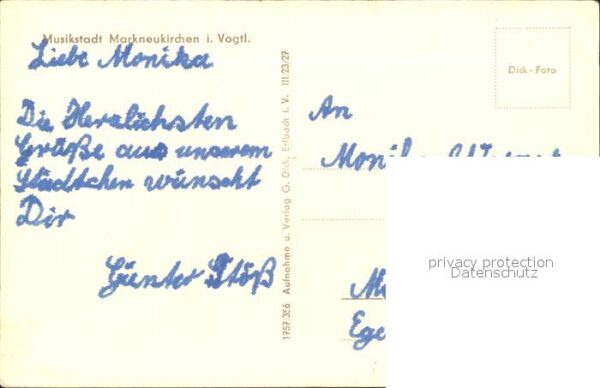 Musikstadt Markneukirchen i. Vogtl.
Liebe Monika
Die Herzlichsten
Grüße aus unserem
Städtchen wünscht
Dir
Günter Stöß
1757 356 Aufnahme u. Verlag G. Dick, Erlbach i. V. III/23/27
Dick-Foto
An
privacy protection
Datenschutz